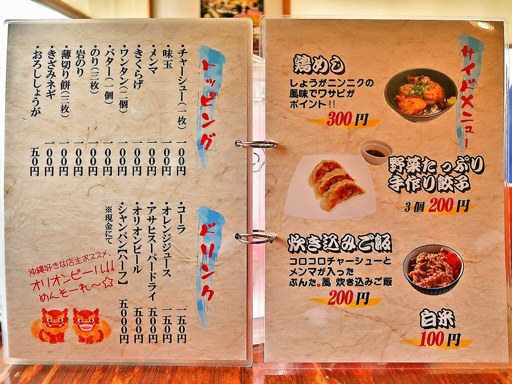 トッピング
・チャーシュー(一枚) 一〇〇円
・味玉 一〇〇円
・メンマ 一〇〇円
・きくらげ 一〇〇円
・ワンタン(二個) 一〇〇円
・バター(一個) 一〇〇円
・のり(三枚) 一〇〇円
・岩のり 一〇〇円
・薄切り餅(三枚) 一〇〇円
・きざみネギ 一〇〇円
・おろししょうが 五〇円
ドリンク
・コーラ 一五〇円
・オレンジジュース 一五〇円
・アサヒスーパードライ
・オリオンビール
・シャンパン【ハーフ】 五〇〇〇円
※現金にて
沖縄好きな店主オススメ、
オリオンビール!!
めんそーれ〜☆
サイドメニュー
鶏めし
しょうがニンニクの
風味でワサビが
ポイント!!
300円
野菜たっぷり
手作り餃子
3個 200円
炊き込みご飯
コロコロチャーシューと
メンマが入った
ぶんた。風 炊き込みご飯
200円
白米
100円